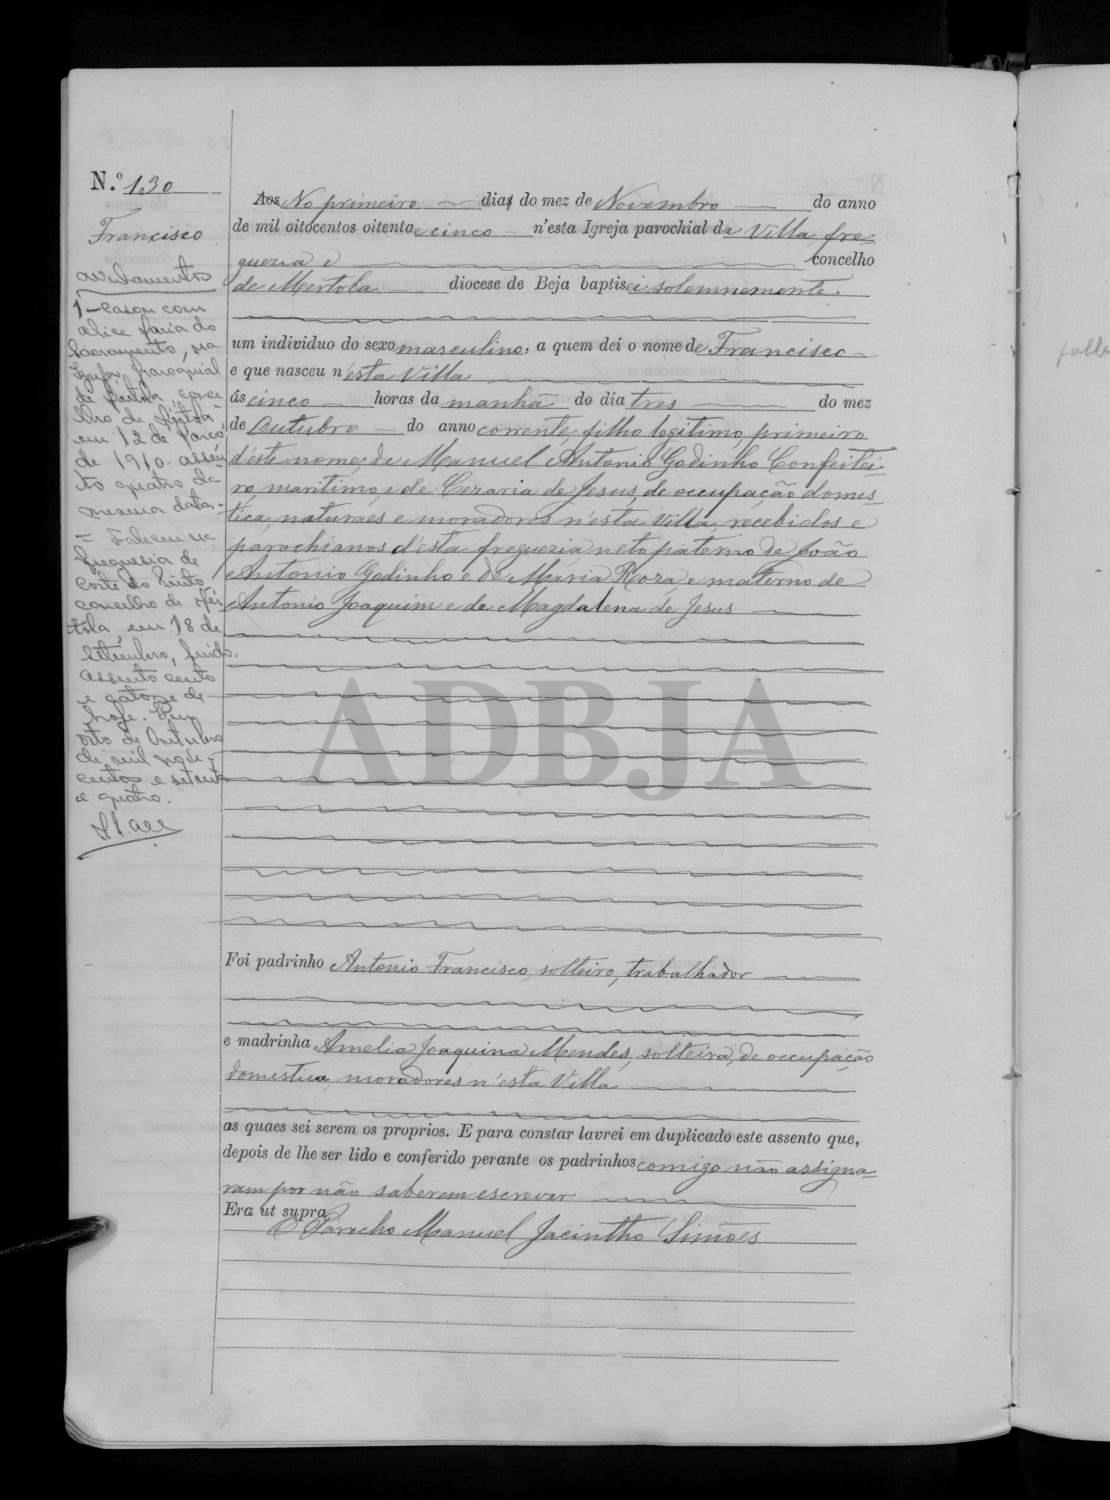 N.º 130
Francisco
Averbamentos
1 - Casou com
Alice Maria do
Sacramento, na
Igreja Paroquial
de Mértola, conce
lho de Mértola,
em 12 de Março
de 1910. assen
to quatro da
mesma data.
= Faleceu na
freguesia de
Corte do Pinto,
concelho de Mér
tola, em 18 de
Setembro, findo.
Assento cento
e catorze de
hoje. Em
oito de Outubro
de mil nove-
centos e setenta
e quatro.
Aos No primeiro dias do mez de Novembro do anno
de mil oitocentos oitenta e cinco n'esta Igreja parochial da Villa, fre
guezia e concelho
de Mertola diocese de Beja baptisei solemnemente
um individuo do sexo masculino, a quem dei o nome de Francisco
e que nasceu n'ésta Villa
ás cinco horas da manhã do dia tres do mez
de Outubro do anno corrente, filho legitimo, primeiro
d'éste nome, de Manuel Antonio Godinho Confeitei-
ro maritimo, e de Cezaria de Jesus, de occupação domes
tica, naturaes e moradores n'ésta Villa, recebidos e
parochianos d'ésta freguezia neto paterno de João
Antonio Godinho e de Maria Roza, e materno de
Antonio Joaquim e de Magdalena de Jesus
ADBJA
Foi padrinho Antonio Francisco, solteiro, trabalhador
e madrinha Amelia Joaquina Mendes, solteira, de occupação
domestica, moradores n'ésta Villa
as quaes sei serem os proprios. E para constar lavrei em duplicado este assento que,
depois de lhe ser lido e conferido perante os padrinhos comigo não assigna-
ram por não saberem escrever
Era ut supra.
O Parocho Manuel Jacintho Simões